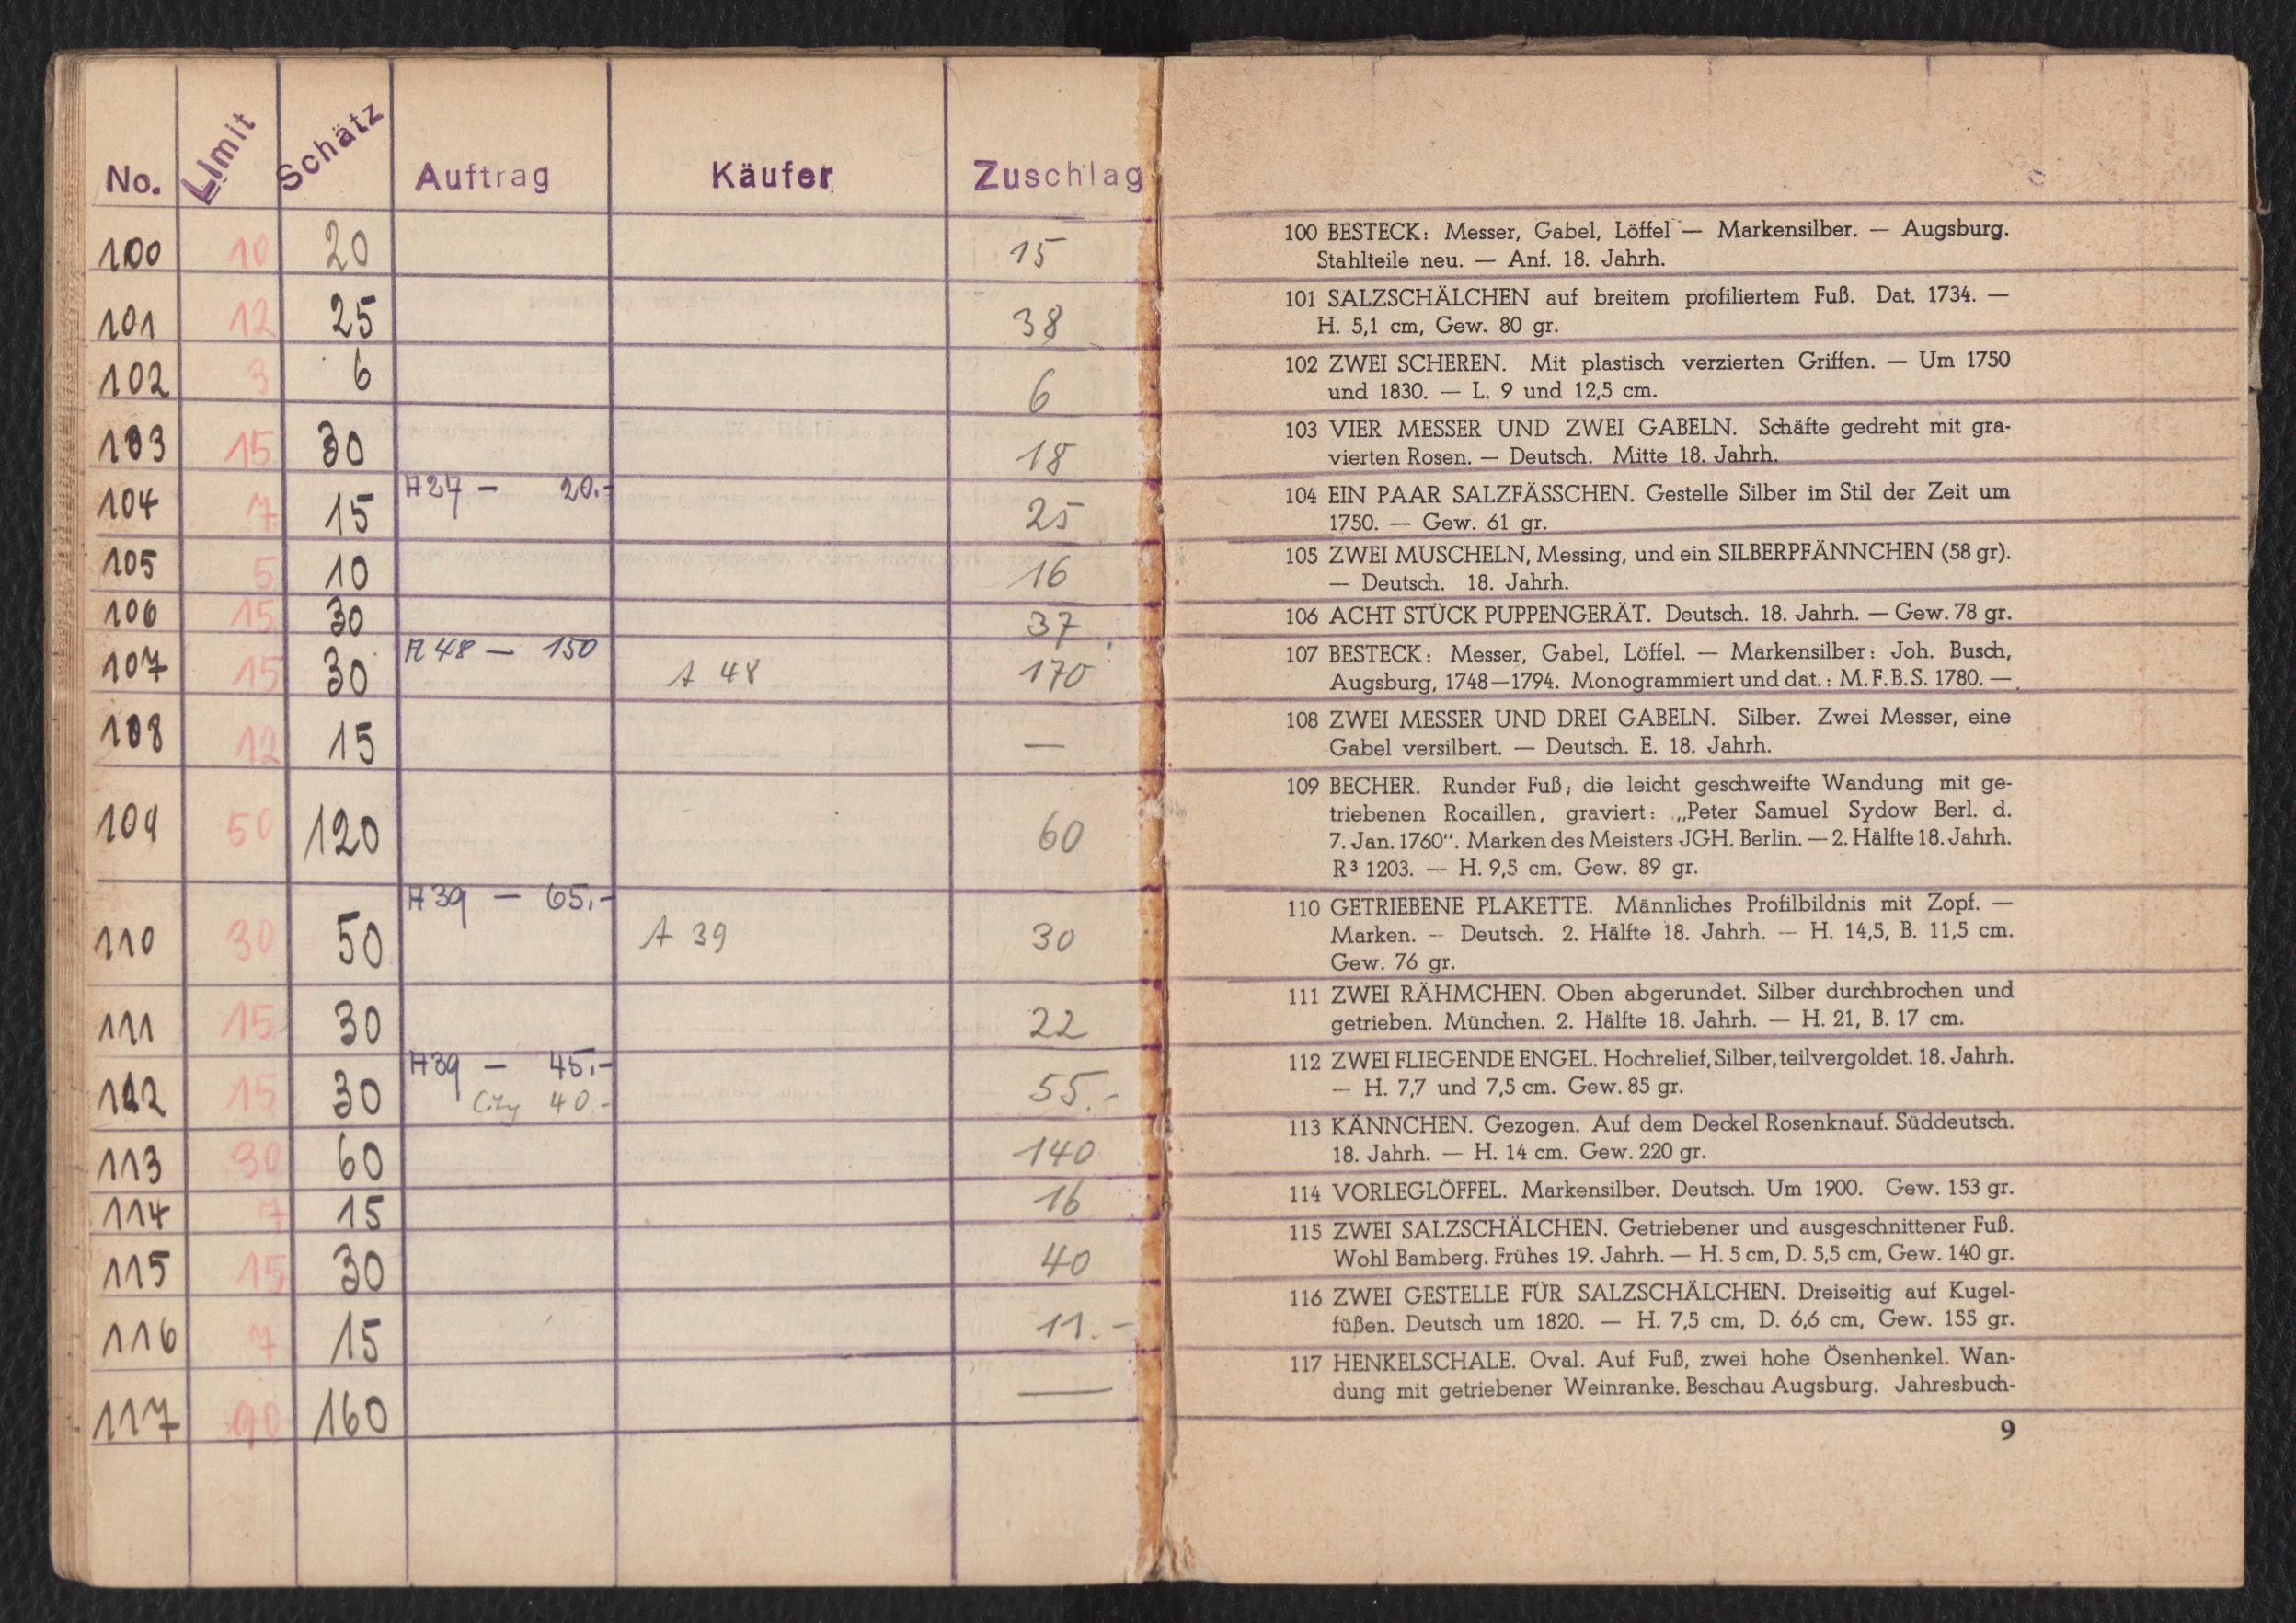 No. Limit Schätz Auftrag Käufer Zuschlag
100 10 20 15
101 12 25 38
102 3 6 6
103 15 30 18
A27 — 20.-
104 7 15 25
105 5 10 16
106 15 30 37
A 48 — 150
107 15 30 A 48 170
108 12 15 —
109 50 120 60
A39 — 65.-
110 30 50 A 39 30
111 15 30 22
A39 — 45.-
112 15 30 City 40.- 55.-
113 30 60 140
114 7 15 16
115 15 30 40
116 7 15 11.-
117 90 160 —
100 BESTECK: Messer, Gabel, Löffel — Markensilber. — Augsburg.
Stahlteile neu. — Anf. 18. Jahrh.
101 SALZSCHÄLCHEN auf breitem profiliertem Fuß. Dat. 1734. —
H. 5,1 cm, Gew. 80 gr.
102 ZWEI SCHEREN. Mit plastisch verzierten Griffen. — Um 1750
und 1830. — L. 9 und 12,5 cm.
103 VIER MESSER UND ZWEI GABELN. Schäfte gedreht mit gra-
vierten Rosen. — Deutsch. Mitte 18. Jahrh.
104 EIN PAAR SALZFÄSSCHEN. Gestelle Silber im Stil der Zeit um
1750. — Gew. 61 gr.
105 ZWEI MUSCHELN, Messing, und ein SILBERPFÄNNCHEN (58 gr).
— Deutsch. 18. Jahrh.
106 ACHT STÜCK PUPPENGERÄT. Deutsch. 18. Jahrh. — Gew. 78 gr.
107 BESTECK: Messer, Gabel, Löffel. — Markensilber: Joh. Busch,
Augsburg, 1748—1794. Monogrammiert und dat.: M.F.B.S. 1780. —
108 ZWEI MESSER UND DREI GABELN. Silber. Zwei Messer, eine
Gabel versilbert. — Deutsch. E. 18. Jahrh.
109 BECHER. Runder Fuß; die leicht geschweifte Wandung mit ge-
triebenen Rocaillen, graviert: „Peter Samuel Sydow Berl. d.
7. Jan. 1760“. Marken des Meisters JGH. Berlin. — 2. Hälfte 18. Jahrh.
R³ 1203. — H. 9,5 cm. Gew. 89 gr.
110 GETRIEBENE PLAKETTE. Männliches Profilbildnis mit Zopf. —
Marken. — Deutsch. 2. Hälfte 18. Jahrh. — H. 14,5, B. 11,5 cm.
Gew. 76 gr.
111 ZWEI RÄHMCHEN. Oben abgerundet. Silber durchbrochen und
getrieben. München. 2. Hälfte 18. Jahrh. — H. 21, B. 17 cm.
112 ZWEI FLIEGENDE ENGEL. Hochrelief, Silber, teilvergoldet. 18. Jahrh.
— H. 7,7 und 7,5 cm. Gew. 85 gr.
113 KÄNNCHEN. Gezogen. Auf dem Deckel Rosenknauf. Süddeutsch.
18. Jahrh. — H. 14 cm. Gew. 220 gr.
114 VORLEGLÖFFEL. Markensilber. Deutsch. Um 1900. Gew. 153 gr.
115 ZWEI SALZSCHÄLCHEN. Getriebener und ausgeschnittener Fuß.
Wohl Bamberg. Frühes 19. Jahrh. — H. 5 cm, D. 5,5 cm, Gew. 140 gr.
116 ZWEI GESTELLE FÜR SALZSCHÄLCHEN. Dreiseitig auf Kugel-
füßen. Deutsch um 1820. — H. 7,5 cm, D. 6,6 cm, Gew. 155 gr.
117 HENKELSCHALE. Oval. Auf Fuß, zwei hohe Ösenhenkel. Wan-
dung mit getriebener Weinranke. Beschau Augsburg. Jahresbuch-
9